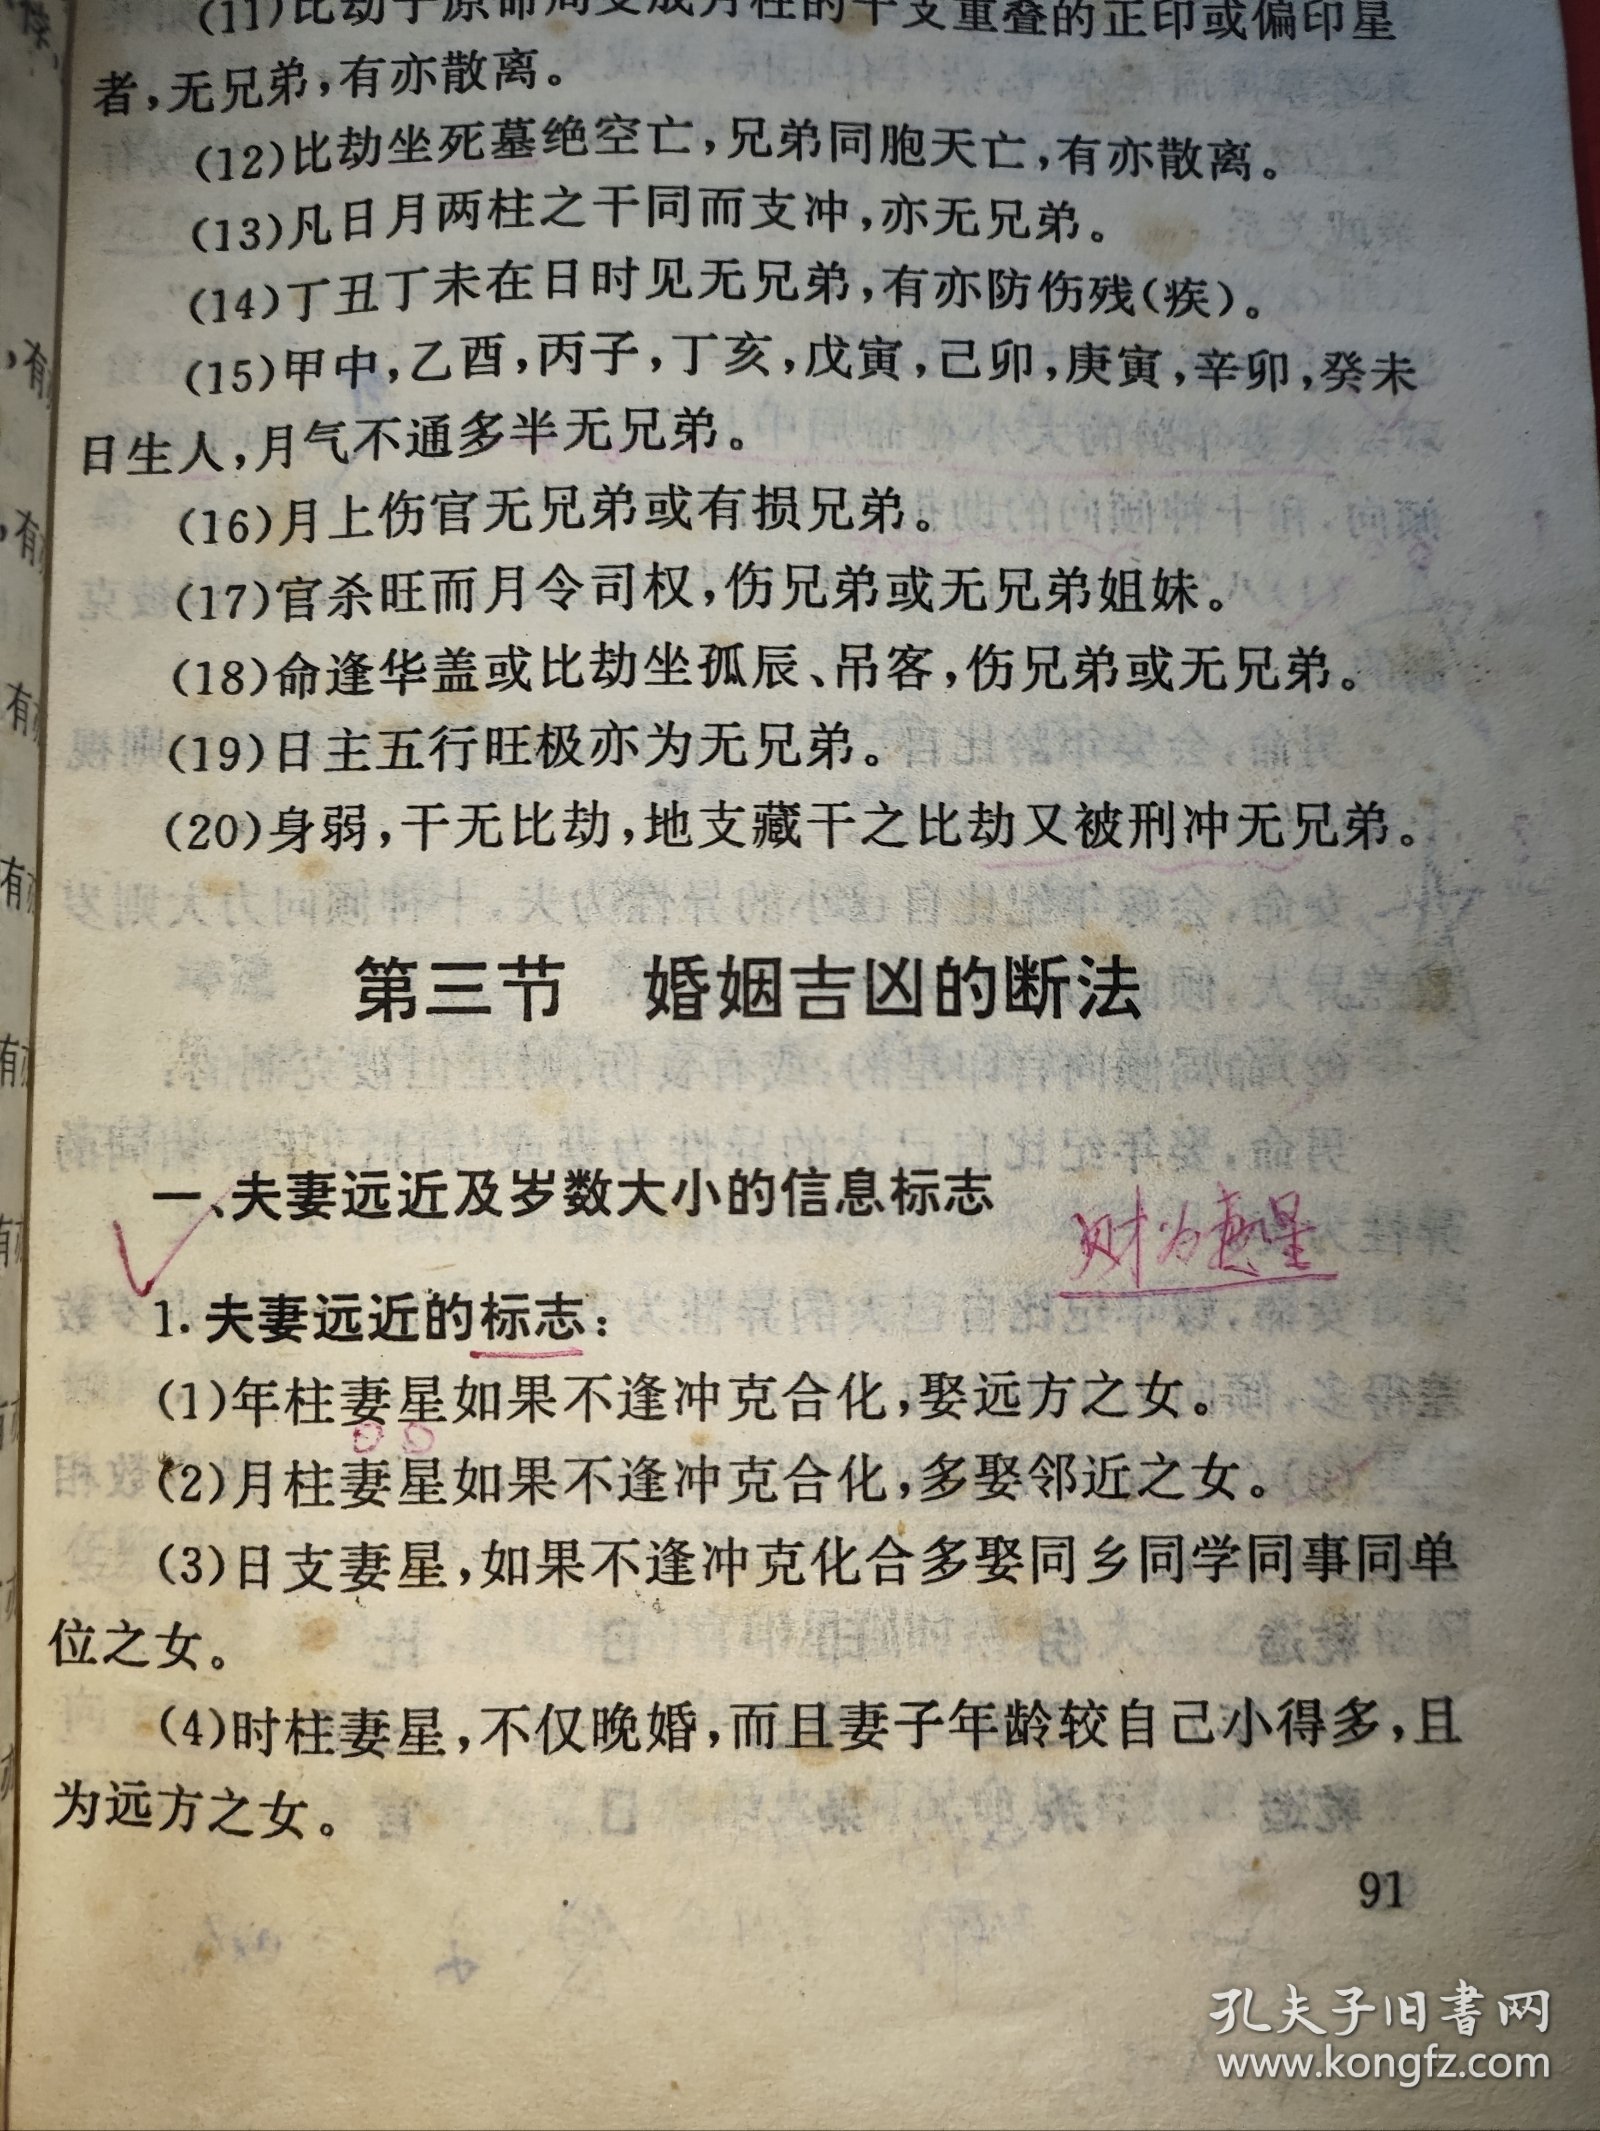 (11)比劫于原命局变成月柱的干支重叠的正印或偏印星
者,无兄弟,有亦散离。
(12)比劫坐死墓绝空亡,兄弟同胞夭亡,有亦散离。
(13)凡日月两柱之干同而支冲,亦无兄弟。
(14)丁丑丁未在日时见无兄弟,有亦防伤残(疾)。
(15)甲中,乙酉,丙子,丁亥,戊寅,己卯,庚寅,辛卯,癸未
日生人,月气不通多半无兄弟。
(16)月上伤官无兄弟或有损兄弟。
(17)官杀旺而月令司权,伤兄弟或无兄弟姐妹。
(18)命逢华盖或比劫坐孤辰、吊客,伤兄弟或无兄弟。
(19)日主五行旺极亦为无兄弟。
(20)身弱,干无比劫,地支藏干之比劫又被刑冲无兄弟。
第三节 婚姻吉凶的断法
一、夫妻远近及岁数大小的信息标志
财为妻星
1.夫妻远近的标志:
(1)年柱妻星如果不逢冲克合化,娶远方之女。
(2)月柱妻星如果不逢冲克合化,多娶邻近之女。
(3)日支妻星,如果不逢冲克化合多娶同乡同学同事同单
位之女。
(4)时柱妻星,不仅晚婚,而且妻子年龄较自己小得多,且
为远方之女。
91
孔夫子旧书网
www.kongfz.com